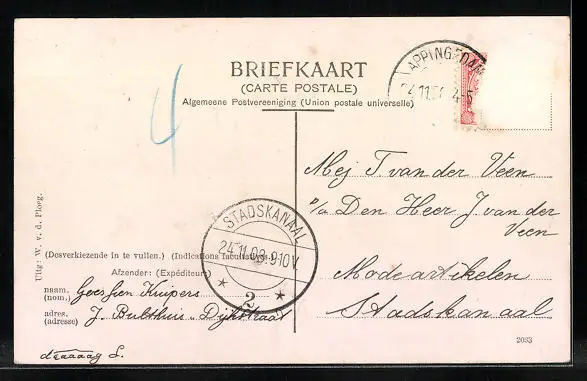 BRIEFKAART
(CARTE POSTALE)
Algemeene Postvereeniging (Union postale universelle)
APPINGEDAM
24.11. 4-5
4
Mej T. van der Veen
p/a Den Heer J. van der
Veen
Modeartikelen
Stadskanaal
STADSKANAAL
24.11.09.9-10V
2
Uitg: W. v. d. Ploeg.
(Desverkiezende in te vullen.) (Indications facultatives.)
Afzender: (Expéditeur)
naam. Geessien Kuipers
(nom.)
adres. J. Bulthuis. Dijkstraat
(adresse)
2053